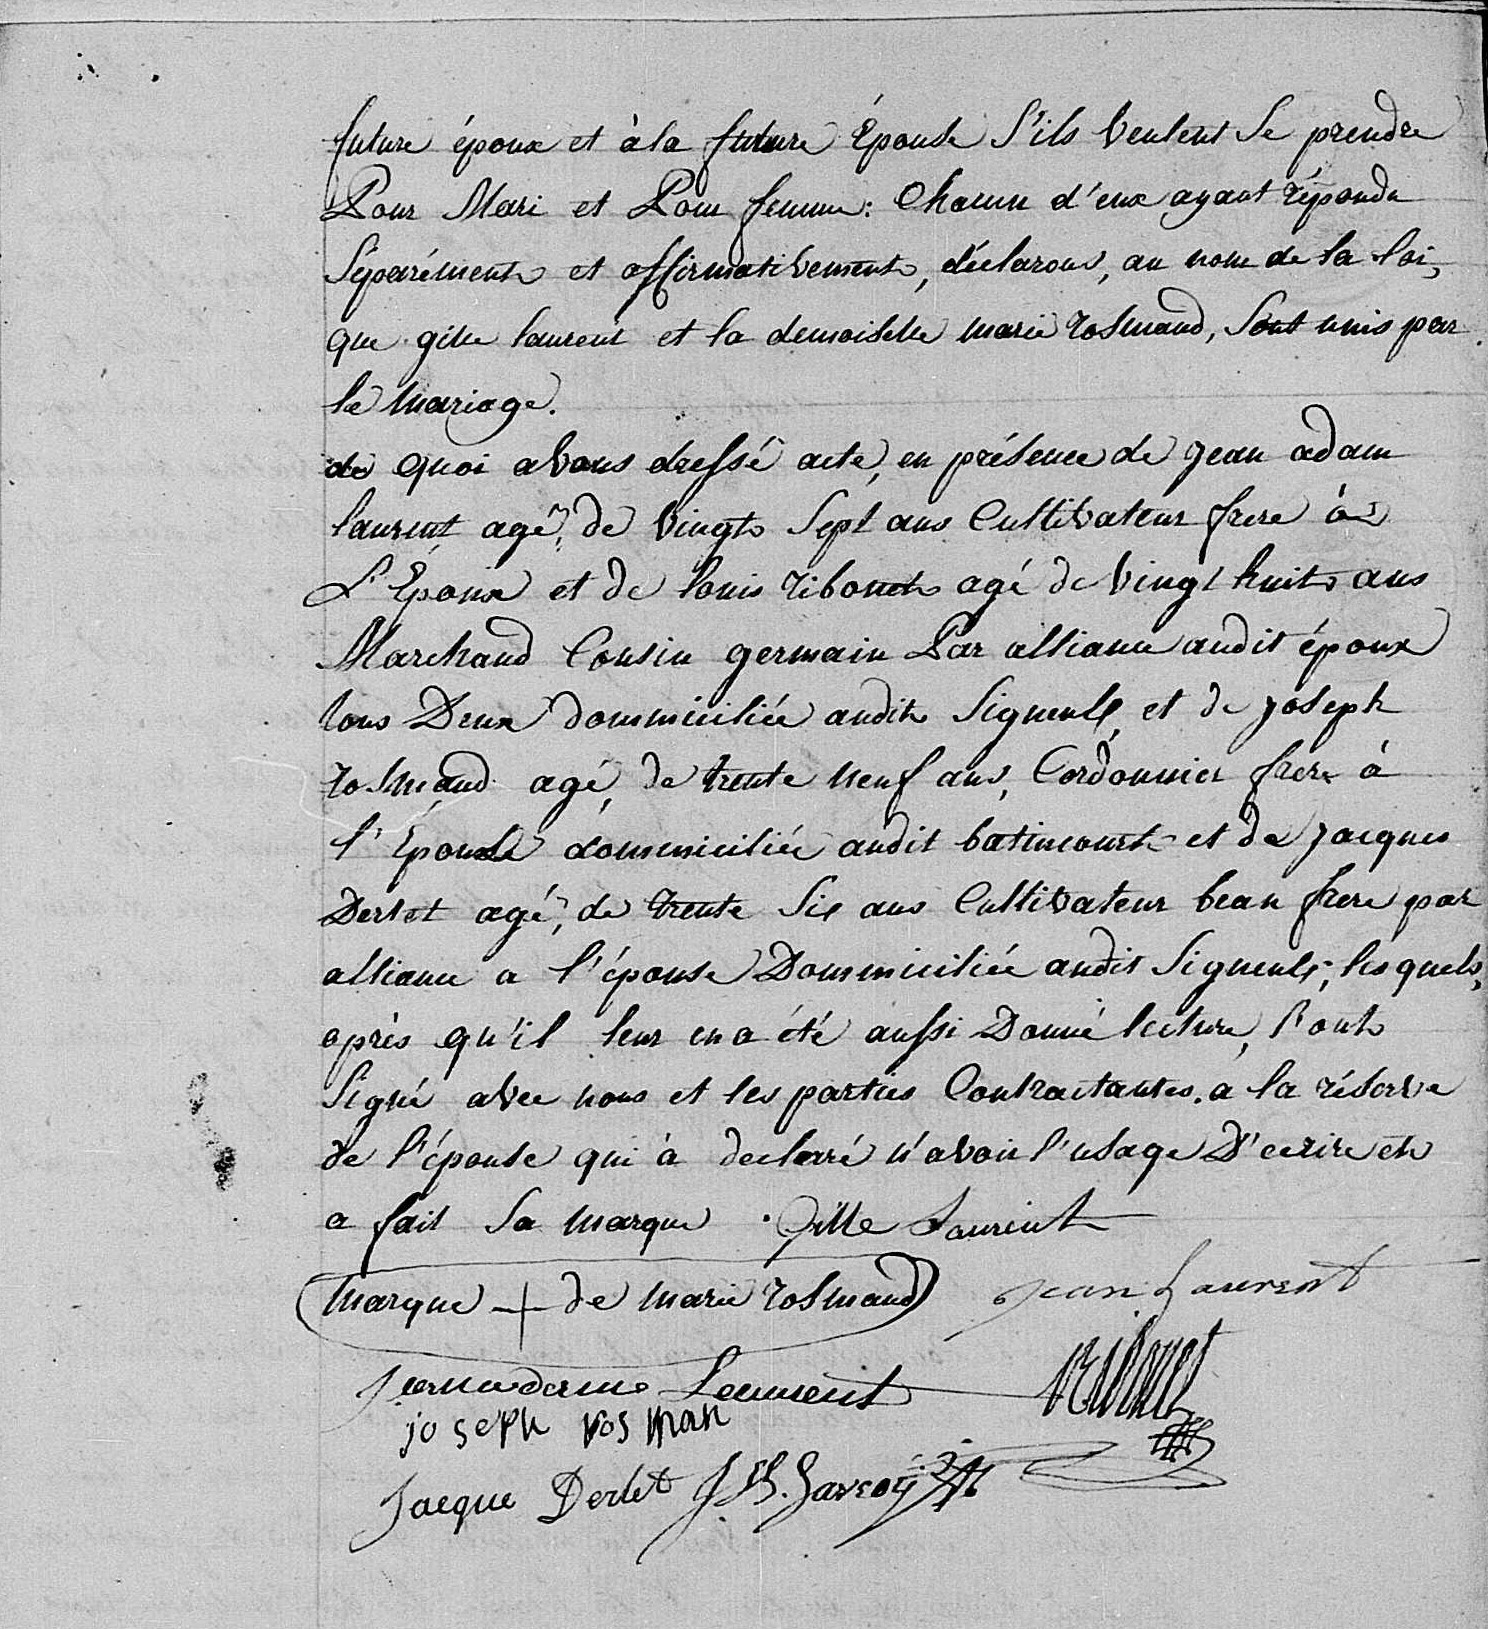 future époux et à la future Épouse S'ils veulent Se prendre
Pour Mari et Pour femme: Chacun d'eux ayant répondu
Séparément et affirmativement, déclarons, au nom de la loi,
que gille laurent et la demoiselle marie rosmand, Sont unis par
le mariage.
de quoi avons dressé acte, en présence de jean adam
laurent agé, de vingt Sept ans Cultivateur frere à
L'Epoux et de louis ribouet agé de vingt huit ans
Marchand Cousin germain Par alliance audit époux
tous Deux dommiciliée audit Signeulx et de joseph
rosmand agé, de trente neuf ans, Cordonnier frere à
l'Épouse dommiciliée audit batincourt et de jacques
Derlet agé, de trente Six ans Cultivateur beau frere par
alliance a l'épouse Dommiciliée audit Signeulx; lesquels,
après qu'il leur en a été aussi Donné lecture, l'ont
Signé avec nous et les parties Contractantes. à la réserve
de l'épouse qui à declaré n'avoir l'usage D'ecrire et
a fait Sa marque . Gille Laurent
marque + de marie rosmand jean Laurent
jean adam Laurent ribouet
joseph rosman
jacque Derlet